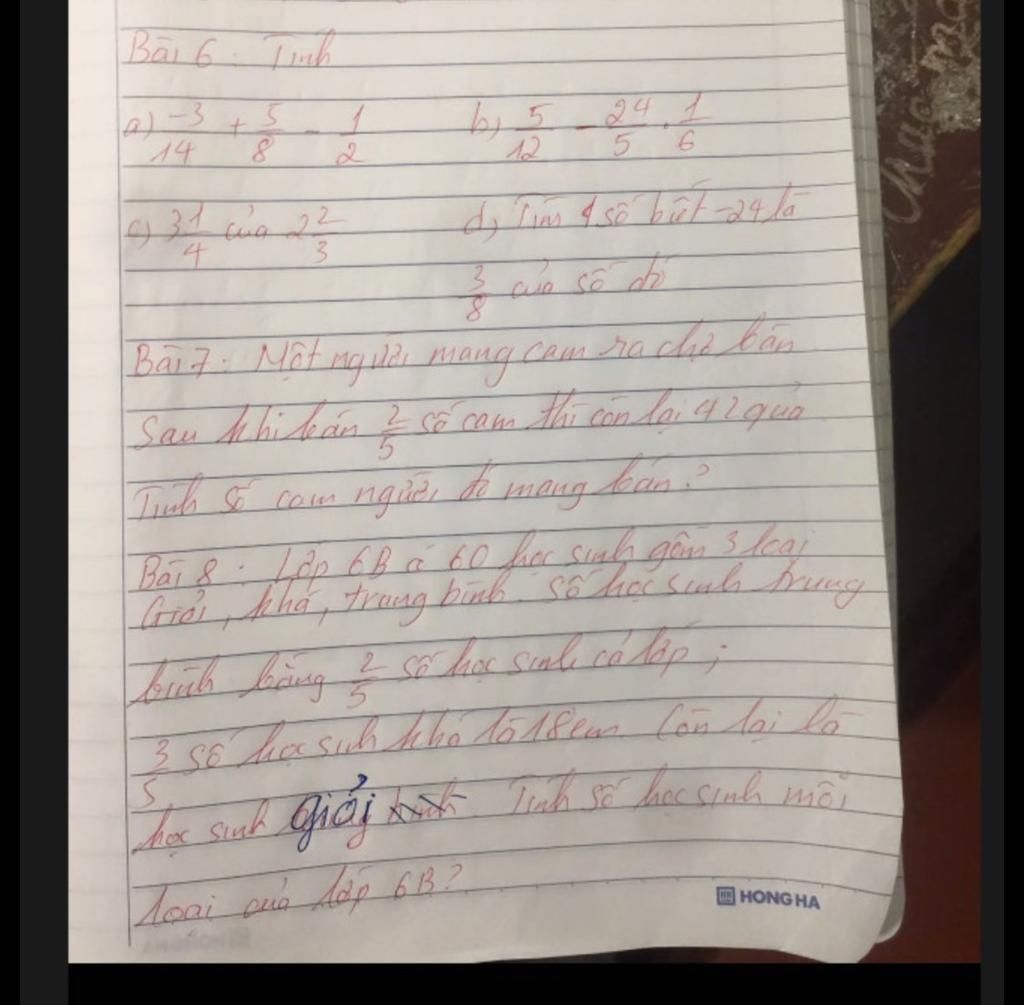 Bài 6: Tính
a) -3/14 + 5/8 - 1/2 b) 5/12 - 24/5 . 1/6
c) 3 1/4 của 2 2/3 d) Tìm 1 số biết -24 là
3/8 của số đó
Bài 7: Một người mang cam ra chợ bán
Sau khi bán 2/5 số cam thì còn lại 42 quả
Tính số cam người đó mang bán?
Bài 8: Lớp 6B có 60 học sinh gồm 3 loại
Giỏi, khá, trung bình. Số học sinh trung
bình bằng 2/5 số học sinh cả lớp;
3/5 số học sinh khá là 18 em Còn lại là
học sinh giỏi Tính số học sinh mỗi
loại của lớp 6B?
HONG HA